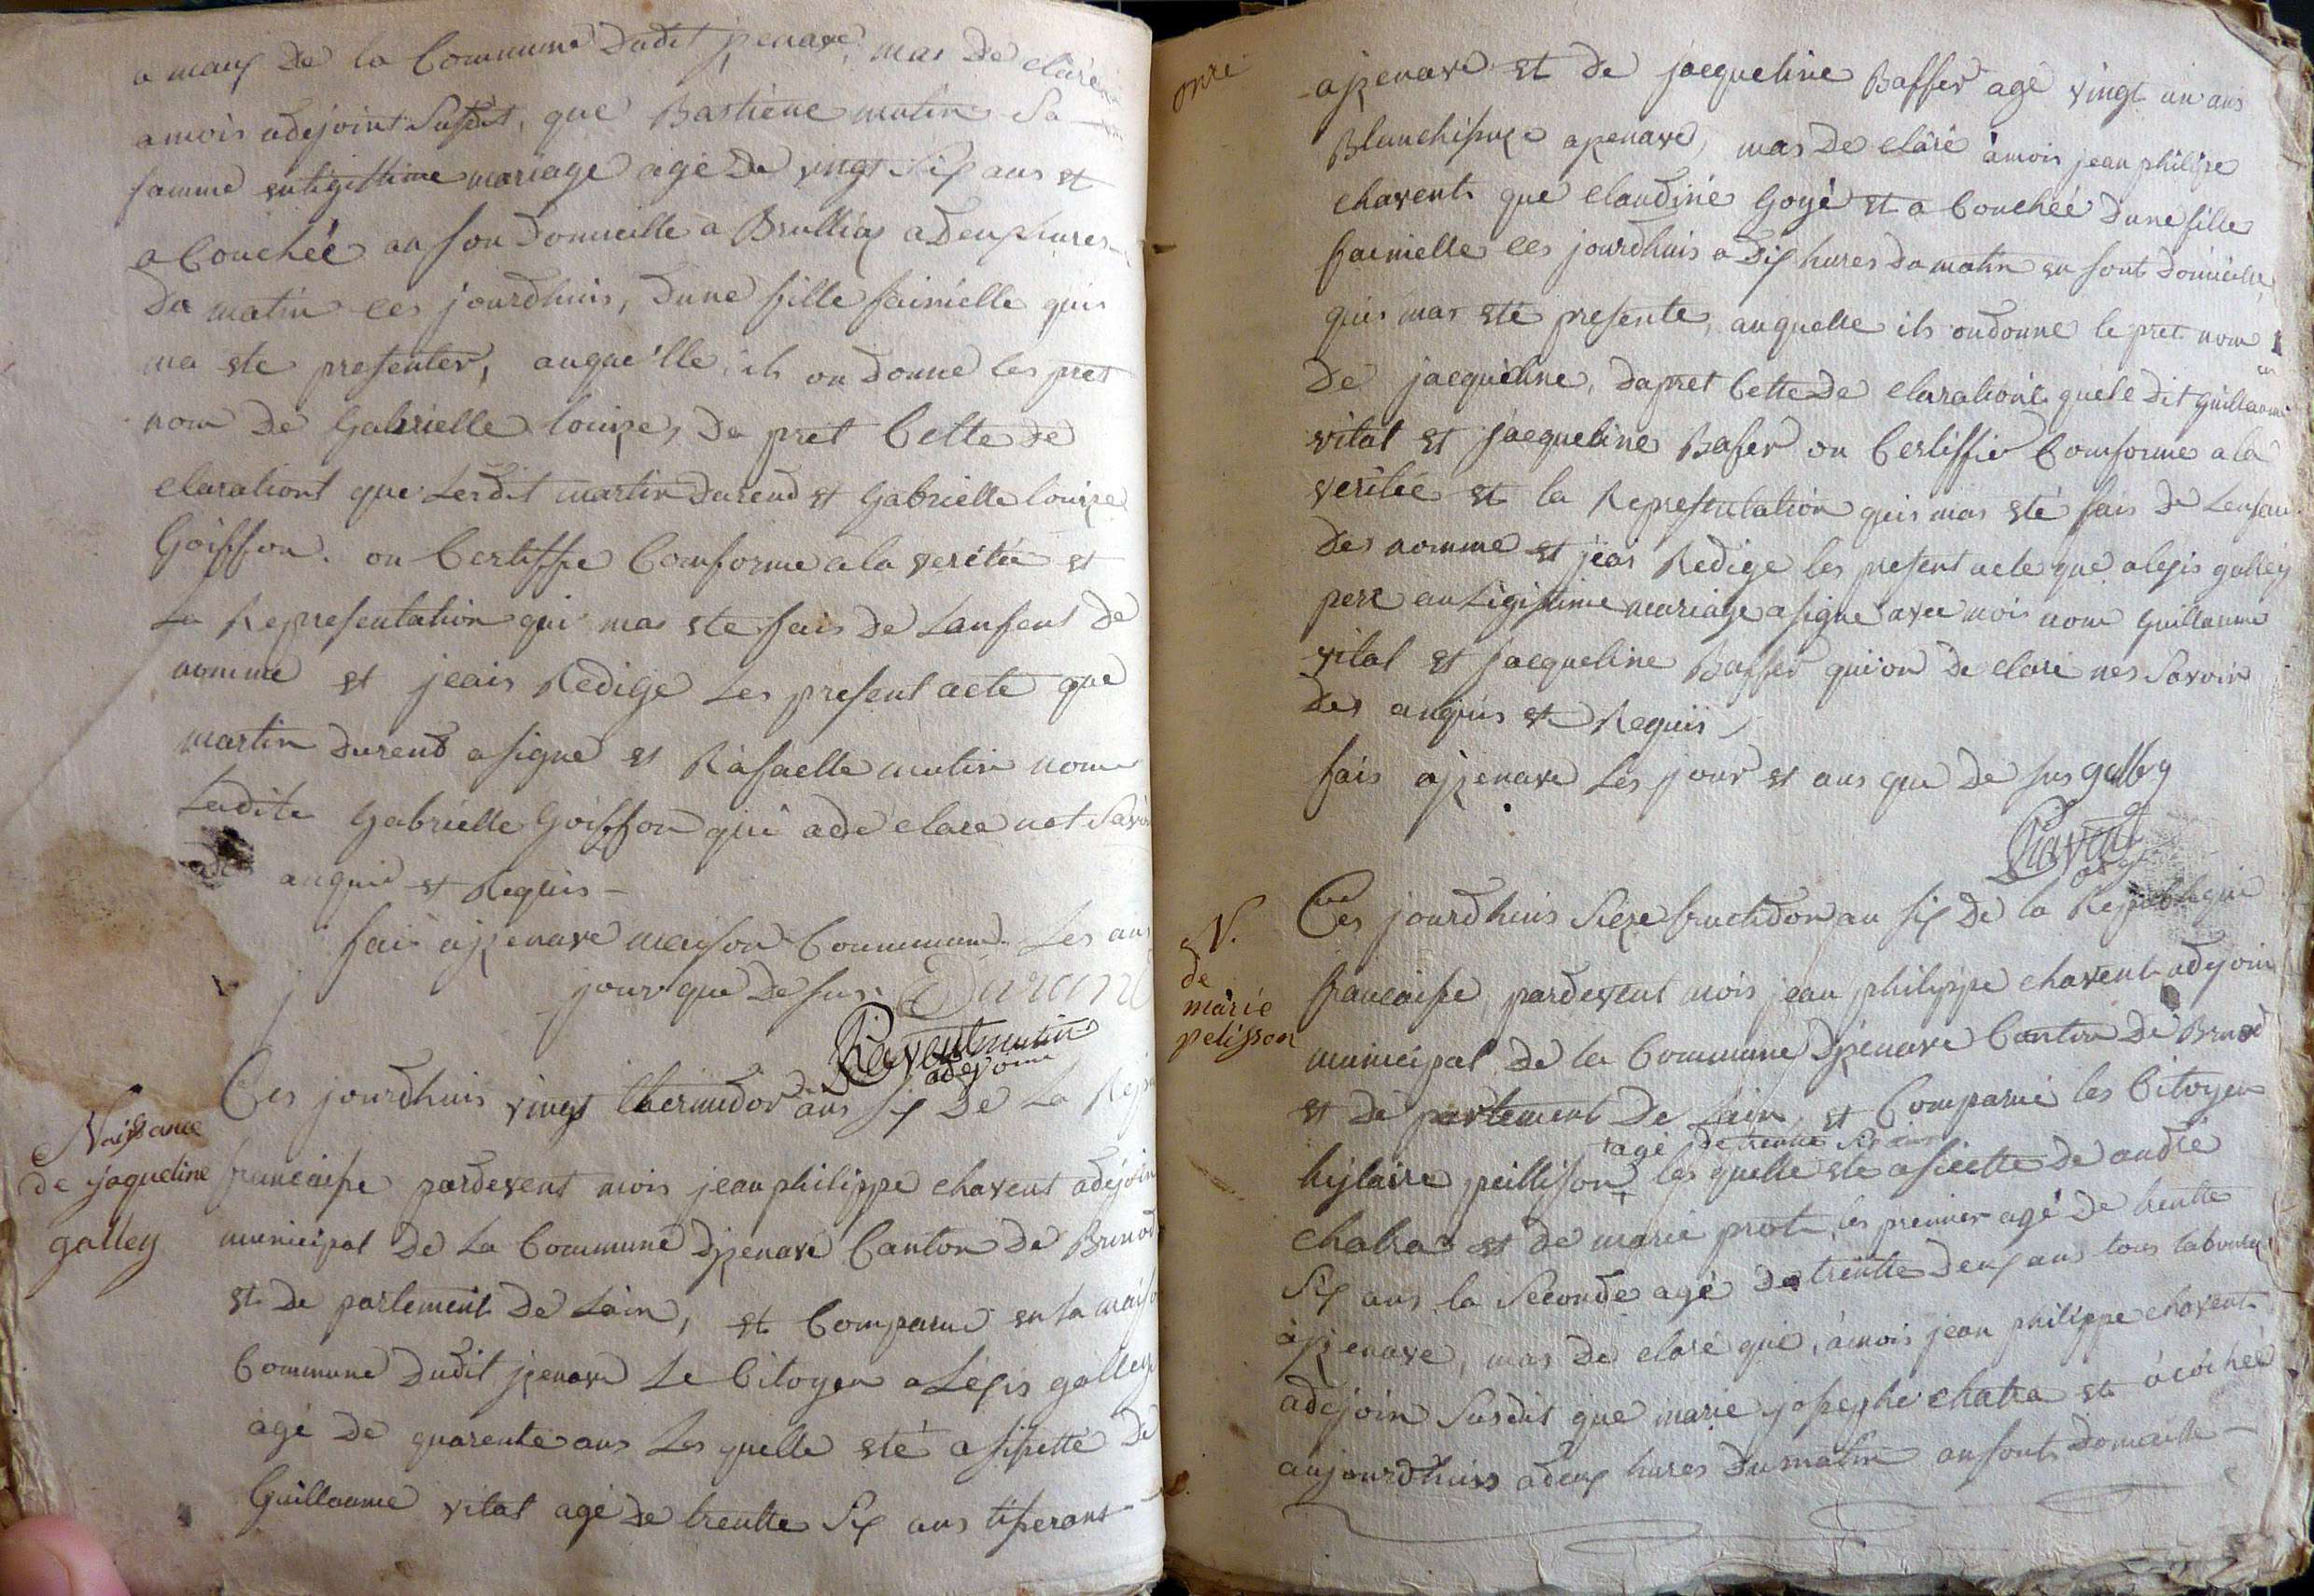 a maux de la Commune dudit jzenave, mas de claré
amois adejoint Susdit, que Bastiene mutin Sa
famme en ligistime mariage agé de vingt Six ans et
a Couchéé an son domicille a Brullias a deux hures
du matin ces jourdhuis, dune fille faimielle quis
ma ste presenter, auquelle ils on donne les pret
nom de Gabrielle louize, da pret Cette de
claration que Lesdit martin durend et Gabrielle louize
Goiffon. on Certiffie Comforme a la veritée et
La Representation qui mas ste fais de Lanfent de
nomme et jeais Redige Les present acte que
martin durend a signe et Rafaelle mutin nom
Ladite Gabrielle Goiffon qui a de clare net Savoir
anquis et Requis
fais a jzenave maison Commune Les ans
jour que desus. Durand
Chavent mutin
adejoint
Naissance
de jaqueline
galley
Ces jourdhuis vingt thermidor ans six de La Rep
francaise pardevent mois jean philippe chavent adejoin
municipal de La Commune djzenave Canton de Brenod
et de partement de Lain, et Comparu en la maiso
Commune dudit jzenave Le Citoyen aLexis galley
agé de quarente ans Les quelle sté asistté de
Guillaume vital agé de trentte Six ans tiserant
onze
a jzenave et de jacqueline Baffer agé vingt un ans
Blanchisuze a jzenave, mas de claré amois jean philipe
chavent que claudine Goyé et a Couchéé dune fille
faimielle ces jourdhuis a dix hures da matin en sont domicille
quis mas sté presente, auquelle ils on donne le pret nom
de jacqueline, dapret Cette de claration que le dit guillaume
vital et jacqueline Bafer on Certiffier Comforme a la
veritée et la Representation quis mas sté fais de Lenfan
des nomme et jeas Redige les present acte que alexis galley
pere an Ligistime mariage a signe avec mois nom guillaume
vital et jacqueline Baffer quion de claré nes Savoir
des anquis et Requis
fais a jzenave Les jour et ans que de sus galley
Chavent
adj
N.
de
marie
pelisson
Ces jourdhuis Sieze fructidor an six de la Republique
francaise, pardevent mois jean philippe chavent adejoin
municipal de la Commune djzenave Canton de Brenod
et de partement de Lain, et Comparu les Citoyen
agé de trentte Six ans
hiylaire peillison, les quelle ste asistte de andre
chatra et de marie prost, les premier agé de trentte
Six ans la Seconde agé de trentte deux ans tous laboureur
a jzenave, mas de claré que, amois jean philippe chavent
adejoin Susdit que marie josephe chatra et acochéé
aujourdhuis a deux hures du matin an sont domicille